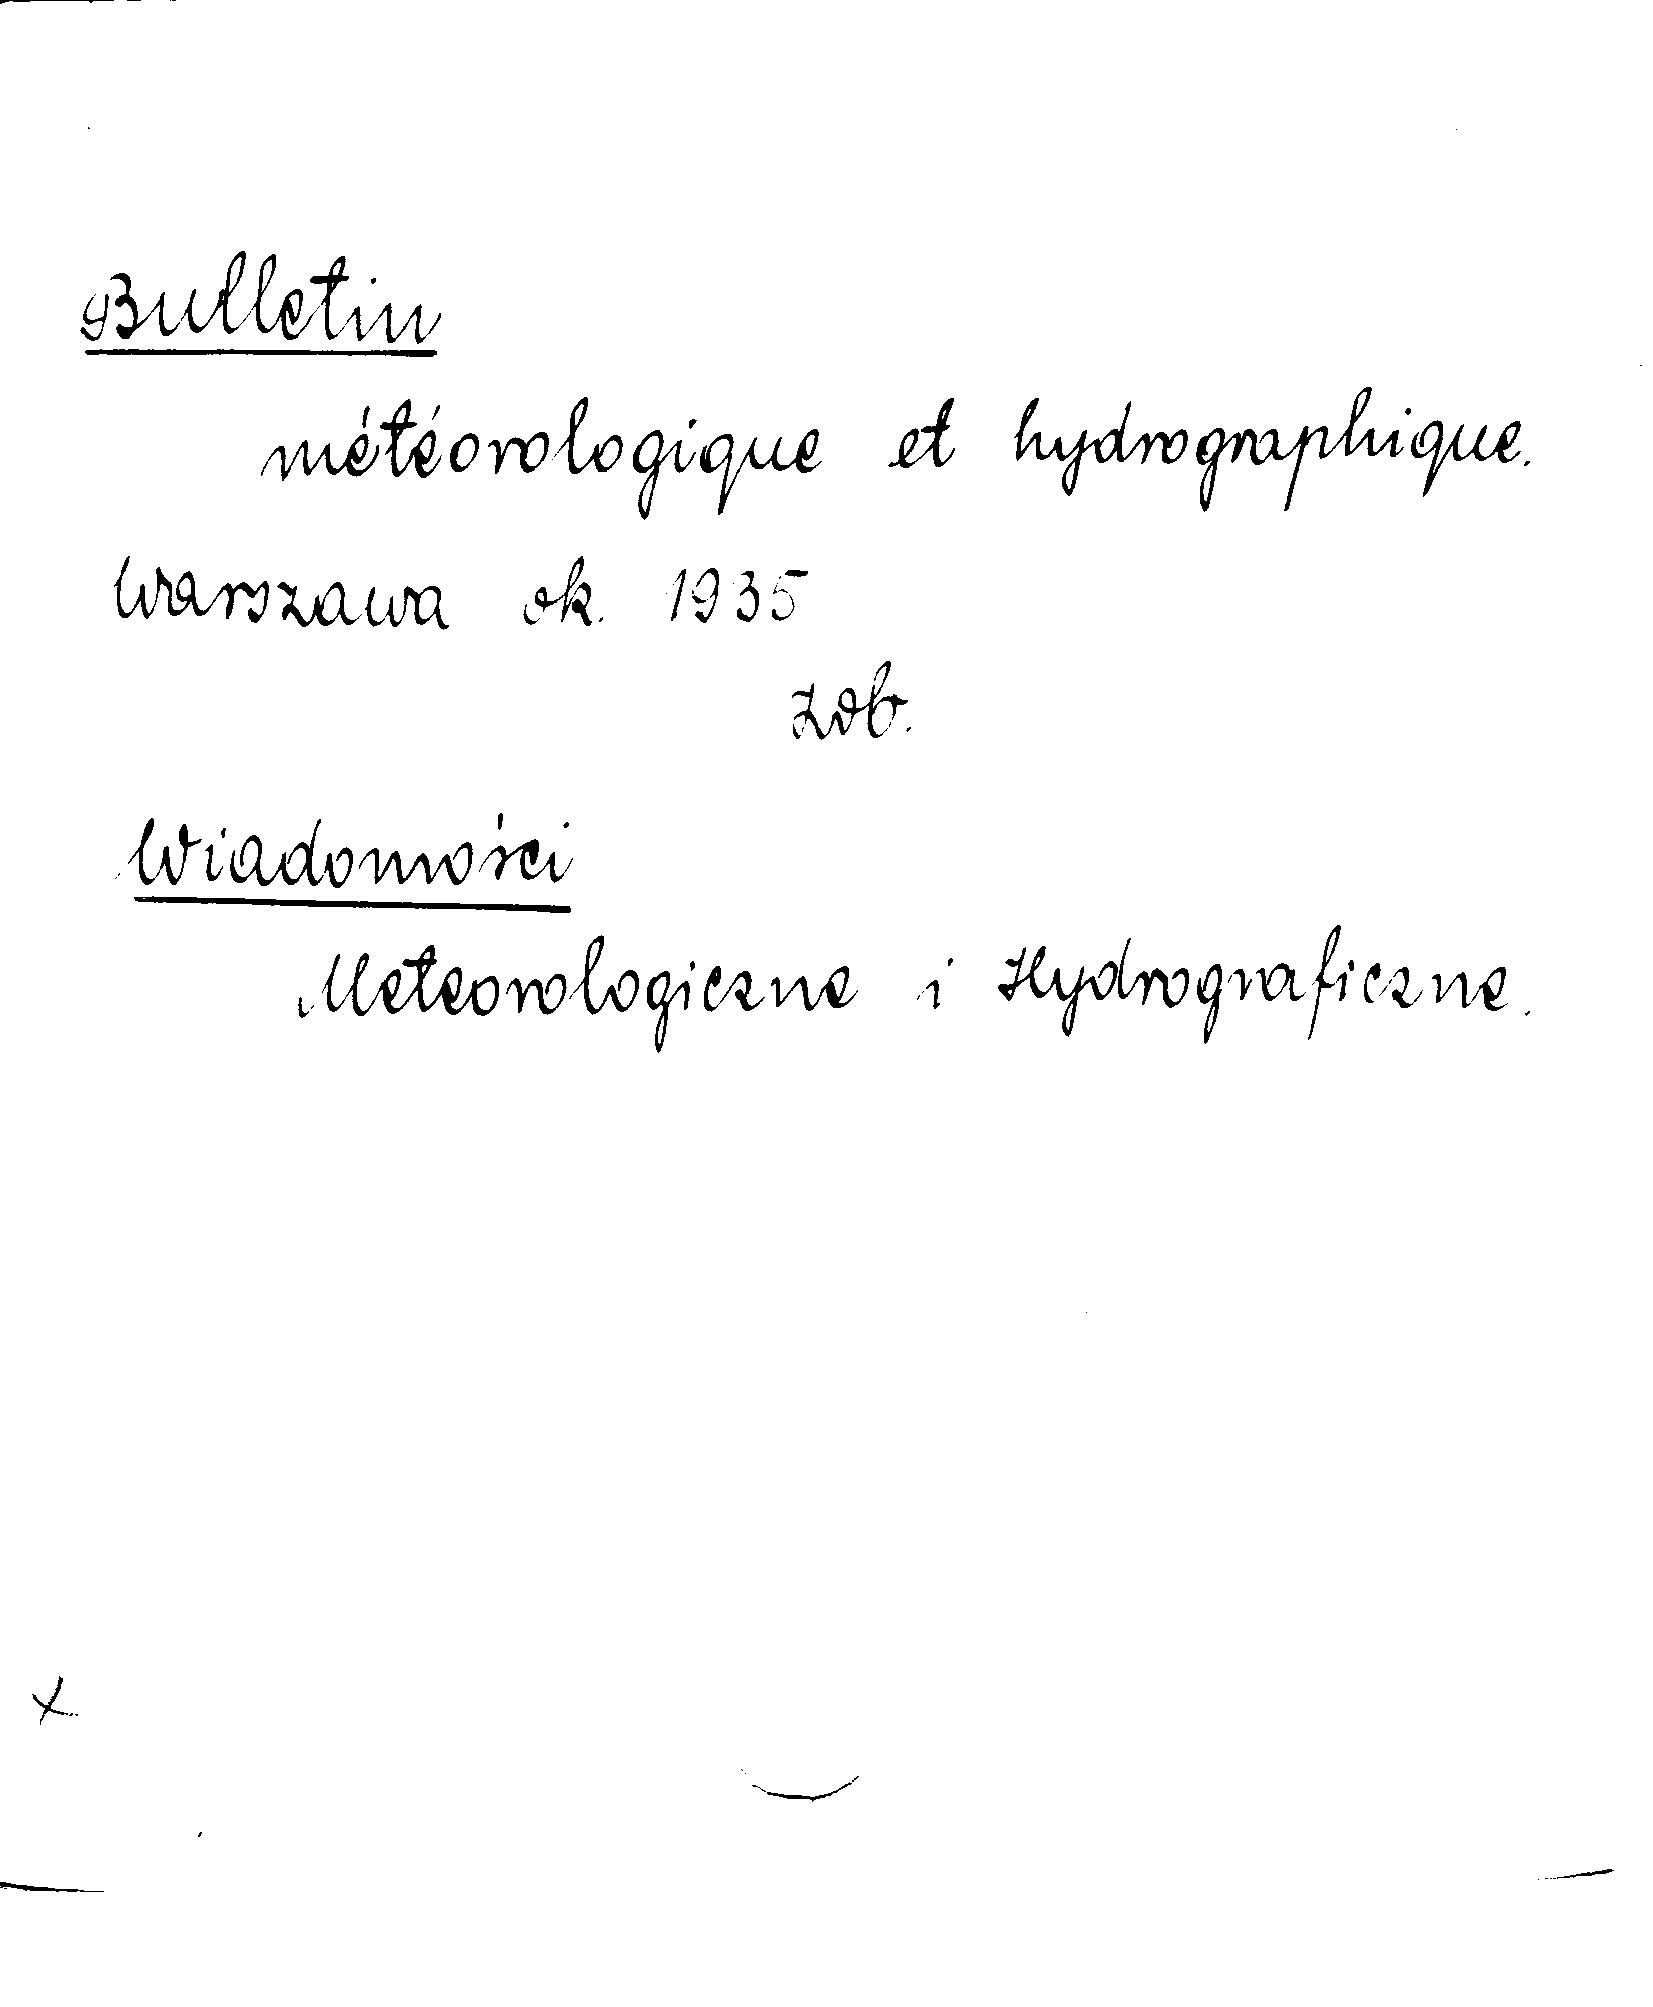 Bulletin
météorologique et hydrographique.
Warszawa ok. 1935
zob.
Wiadomości
Meteorologiczne i Hydrograficzne.
x